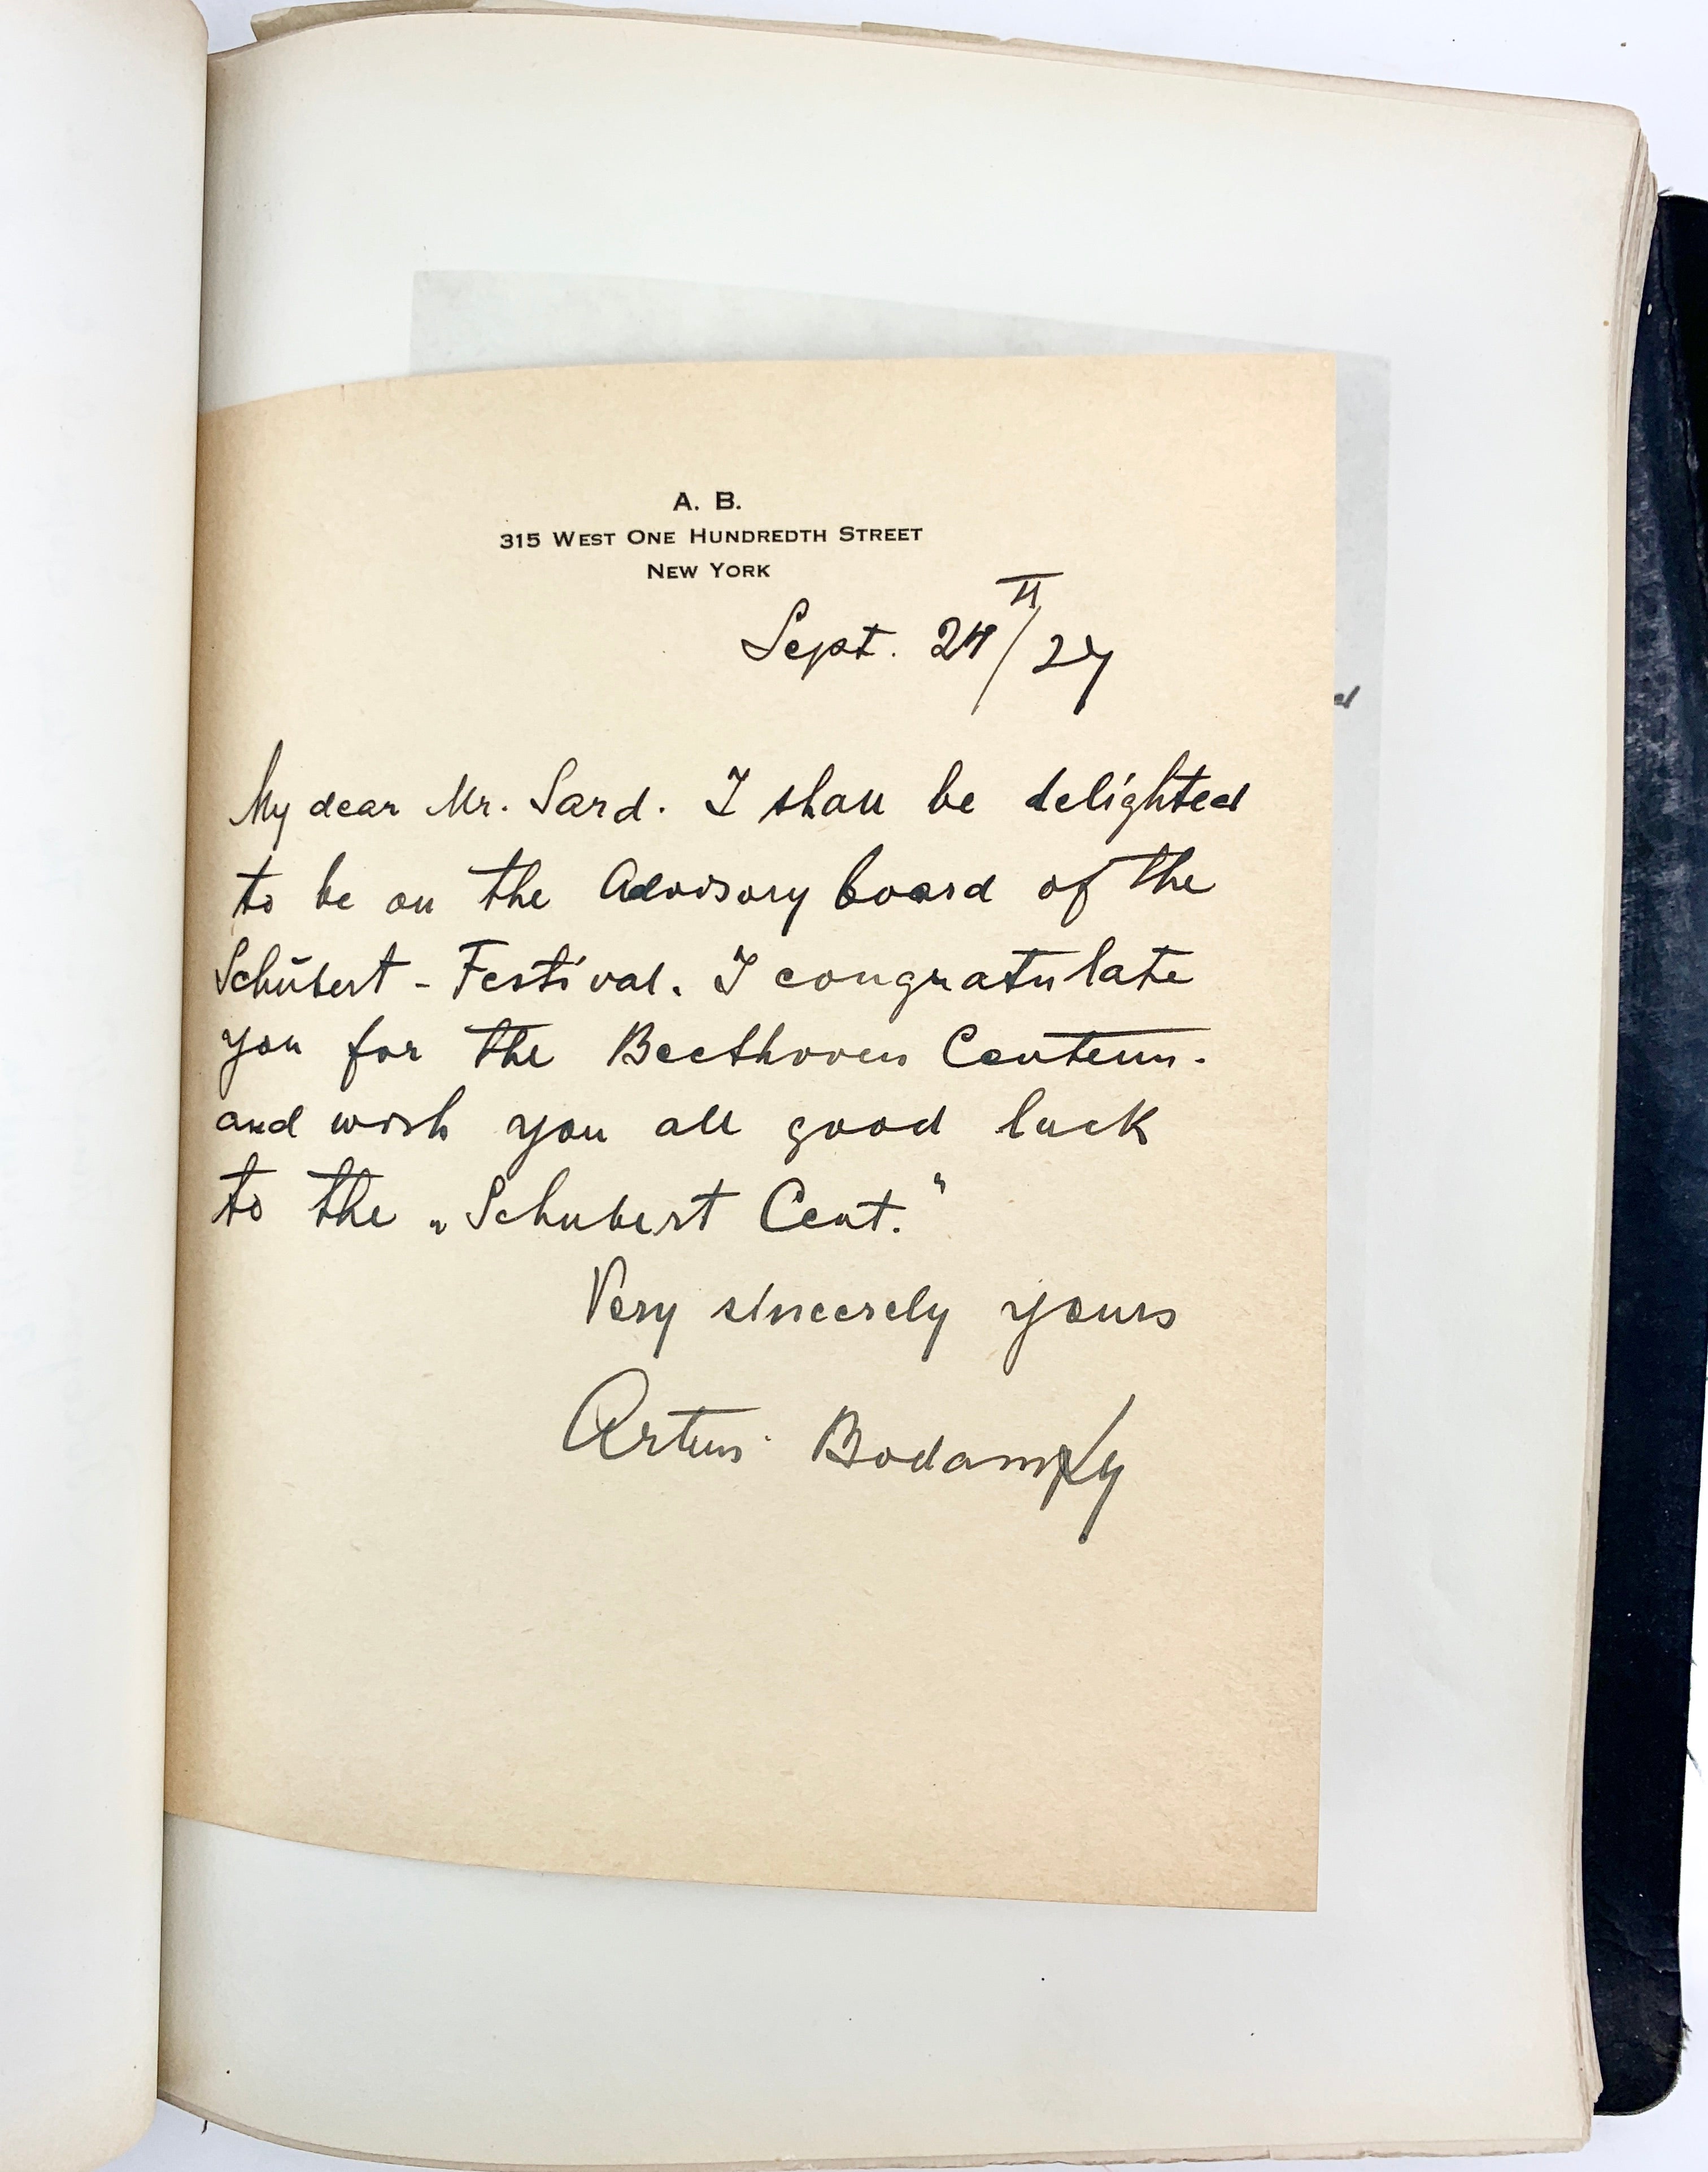 A. B.
315 West One Hundredth Street
New York
Sept. /27
My dear Mr. Sard. I shall be delighted
to be on the Advisory board of the
Schūbert - Festival. I congratulate
you for the Beethoven Centenn.
and wish you all good luck
to the „Schubert Cent."
Very sincerely yours
Artur Bodanzky